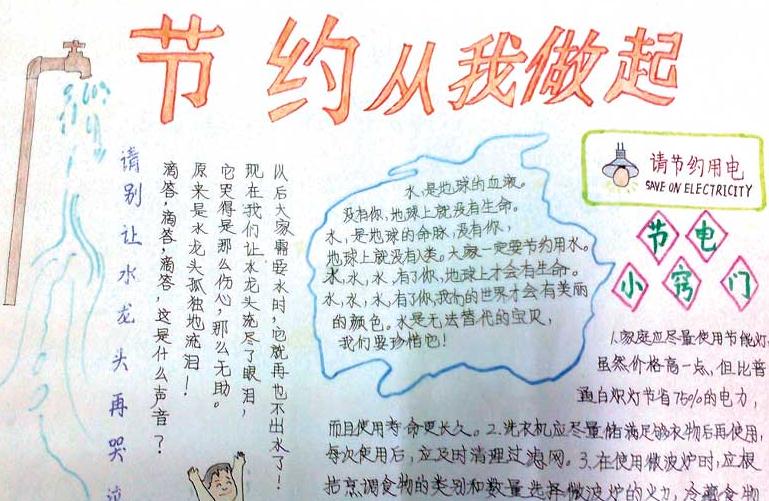 节约从我做起
请别让水龙头再哭
滴答,滴答,滴答,这是什么声音?
原来是水龙头孤独地流泪!
它哭得是那么伤心,那么无助。
现在我们让水龙头流尽了眼泪,
以后大家需要水时,它就再也不出水了!
水,是地球的血液。
没有你,地球上就没有生命。
水,是地球的命脉,没有你,
地球上就没有人类。大家一定要节约用水。
水,水,水,有了你,地球上才会有生命。
水,水,水,有了你,我们的世界才会有美丽
的颜色。水是无法替代的宝贝,
我们要珍惜它!
请节约用电
SAVE ON ELECTRICITY
节电
小窍门
1.家庭应尽量使用节能灯
虽然价格高一点,但比普
通白炽灯节省75%的电力,
而且使用寿命更长久。2.洗衣机应尽量储满足够衣物后再使用,
每次使用后,应及时清理过滤网。3.在使用微波炉时,应根
据烹调食物的类别和数量选择微波炉的火力,冷藏食物